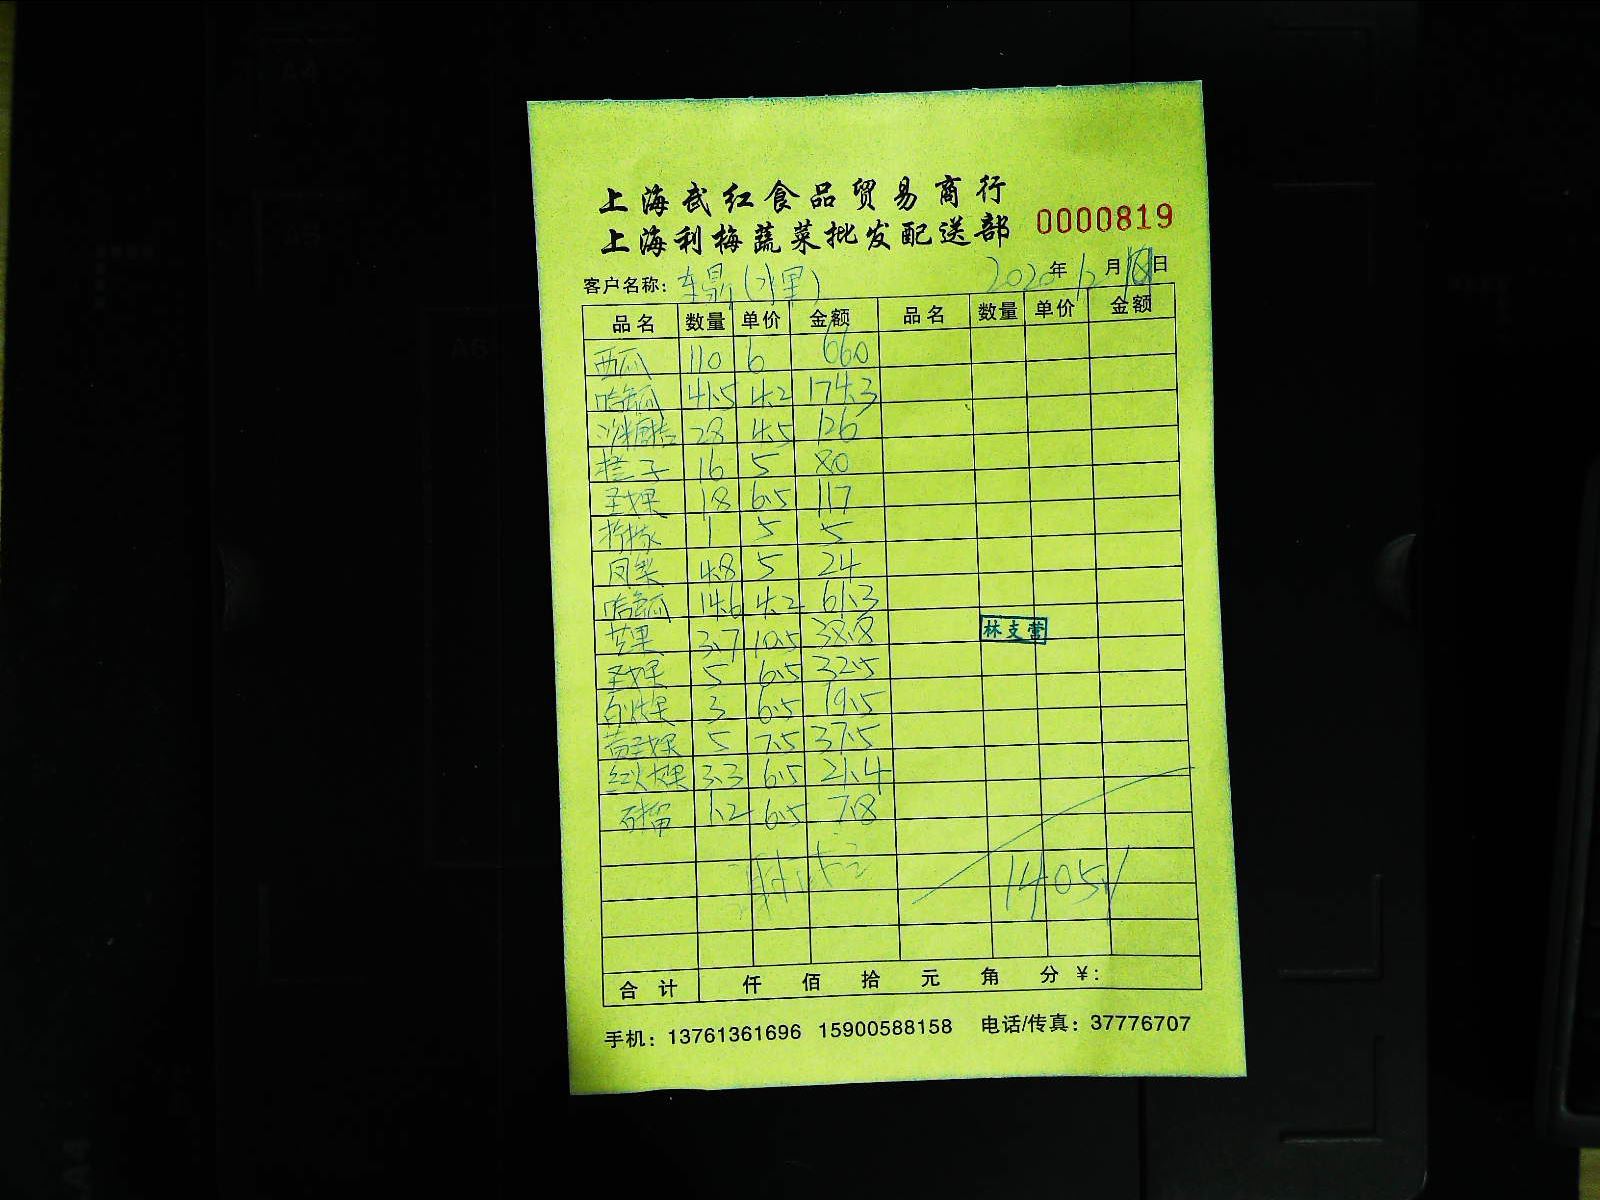 上海武红食品贸易商行
上海利梅蔬菜批发配送部 0000819
客户名称: 2020年12月 日
品名 数量 单价 金额 品名 数量 单价 金额
西瓜 110 6 660
哈蜜瓜 41.5 4.2 174.3
沙糖桔 28 4.5 126
橙子 16 5 80
圣女果 18 6.5 117
柠檬 1 5 5
凤梨 4.8 5 24
哈蜜瓜 14.6 4.2 61.3
芒果 3.7 10.5 38.8
圣女果 5 6.5 32.5
白火龙果 3 6.5 19.5
黄圣女果 5 7.5 37.5
红火龙果 3.3 6.5 21.4
石榴 1.2 6.5 7.8
林支营
1405.1
合计 仟 佰 拾 元 角 分 ¥:
手机: 13761361696 15900588158 电话/传真: 37776707